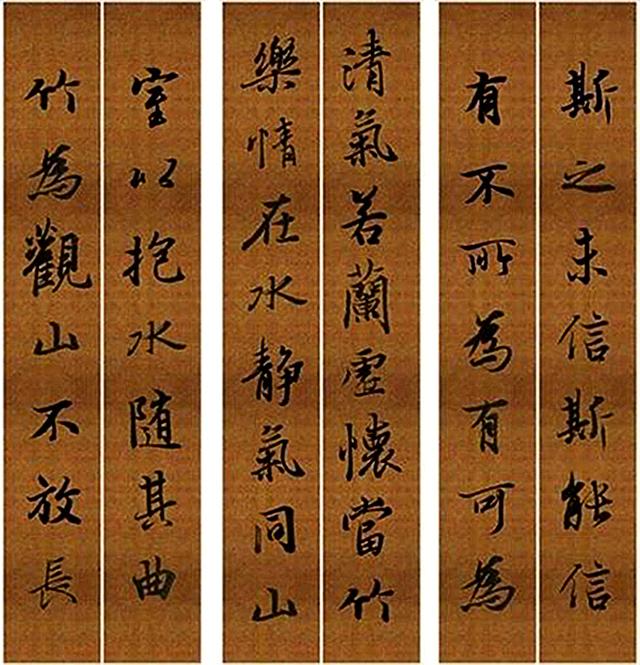 斯之未信斯能信
有不所為有可為
清氣若蘭虛懷當竹
樂情在水静氣同山
室以抱水隨其曲
竹為觀山不放長